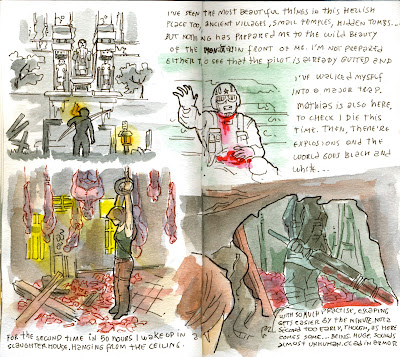 I'VE SEEN THE MOST BEAUTIFUL THINGS IN THIS HELLISH
PLACE TOO, ANCIENT VILLAGES, SMALL TEMPLES, HIDDEN TOMBS...
BUT NOTHING HAS PREPARED ME TO THE WILD BEAUTY
OF THE IN FRONT OF ME. I'M NOT PREPARED
EITHER TO SEE THAT THE PILOT IS ALREADY GUTTED AND
I'VE WALKED MYSELF
INTO A MAJOR TRAP.
MATHIAS IS ALSO HERE,
TO CHECK I DIE THIS
TIME. THEN, THERE'RE
EXPLOSIONS AND THE
WORLD GOES BLACK AND
WHITE...
FOR THE SECOND TIME IN 50 HOURS I WAKE UP IN A
SLAUGHTERHOUSE, HANGING FROM THE CEILING.
WITH SO MUCH PRACTISE, ESCAPING
GETS EASIER BY THE MINUTE. NOT A
SECOND TOO EARLY, THOUGH, AS HERE
COMES SOME... BEING. HUGE, SOUNDS
ALMOST UNHUMAN, CLAD IN ARMOR.